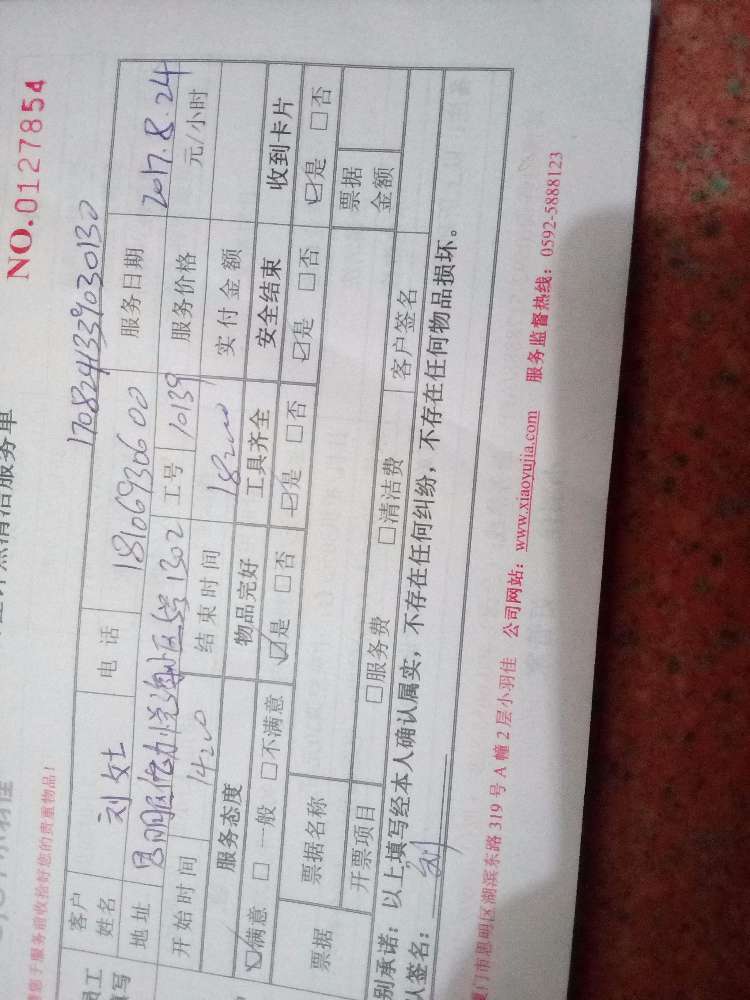 清洁服务单
NO.0127854
您于服务前收拾好您的贵重物品！
1708241339030130
客户姓名 刘女士 电话 18106930600 服务日期 2017.8.24
地址 1302 工号 10139 服务价格 元/小时
开始时间 1420 结束时间 1820 实付金额
服务态度 物品完好 工具齐全 安全结束 收到卡片
☑满意 □一般 □不满意 ☑是 □否 ☑是 □否 ☑是 □否 ☑是 □否
票据 票据名称 票据金额
开票项目 □服务费 □清洁费 客户签名
别承诺：以上填写经本人确认属实，不存在任何纠纷，不存在任何物品损坏。
人签名： 刘
厦门市思明区湖滨东路319号A幢2层小羽佳 公司网站：www.xiaoyujia.com 服务监督热线：0592-5888123